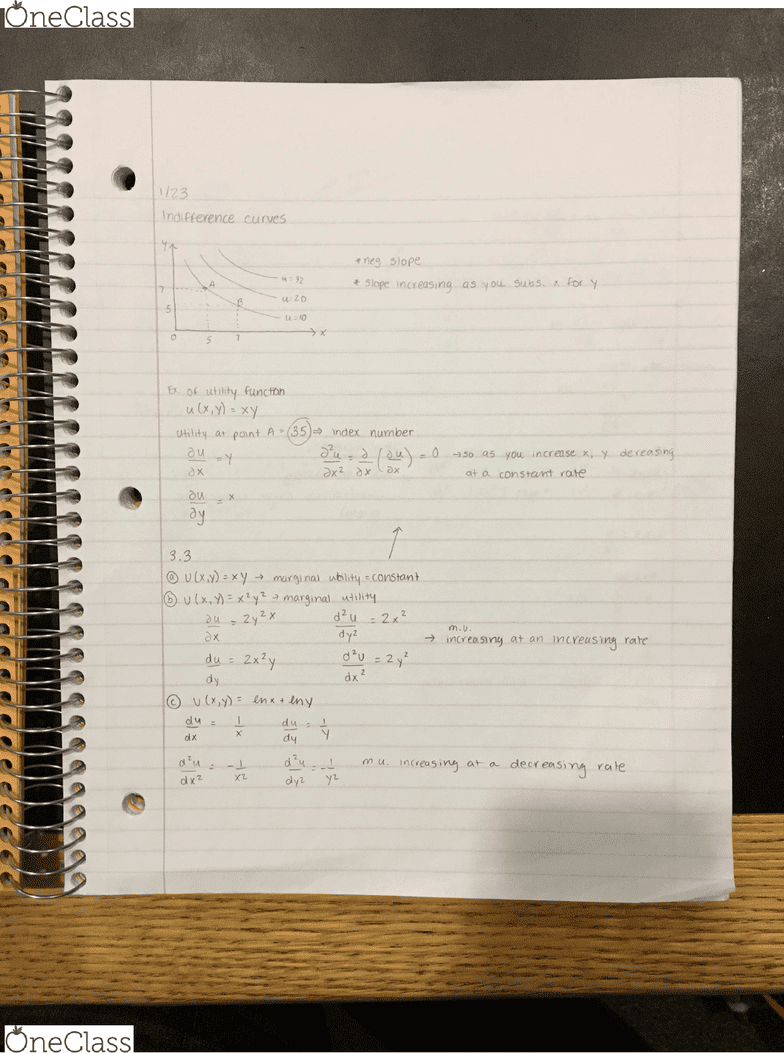 OneClass
1/23
Indifference curves
y
* neg slope
A
u=32
* slope increasing as you subs. x for y
7
u=20
B
5
u=10
x
0 5 7
Ex. of utility functon
u(x,y) = xy
utility at point A = 35 ⇒ index number
∂u/∂x = y ∂²u/∂x² = ∂/∂x (∂u/∂x) = 0 → so as you increase x, y decreasing
at a constant rate
∂u/∂y = x
3.3
ⓐ U(x,y) = xy → marginal utility = constant
ⓑ U(x,y) = x²y² → marginal utility
∂u/∂x = 2y²x d²u/dy² = 2x²
m.u.
→ increasing at an increasing rate
du/dy = 2x²y d²u/dx² = 2y²
ⓒ U(x,y) = lnx + lny
du/dx = 1/x du/dy = 1/y
d²u/dx² = -1/x² d²u/dy² = -1/y² m.u. increasing at a decreasing rate
OneClass